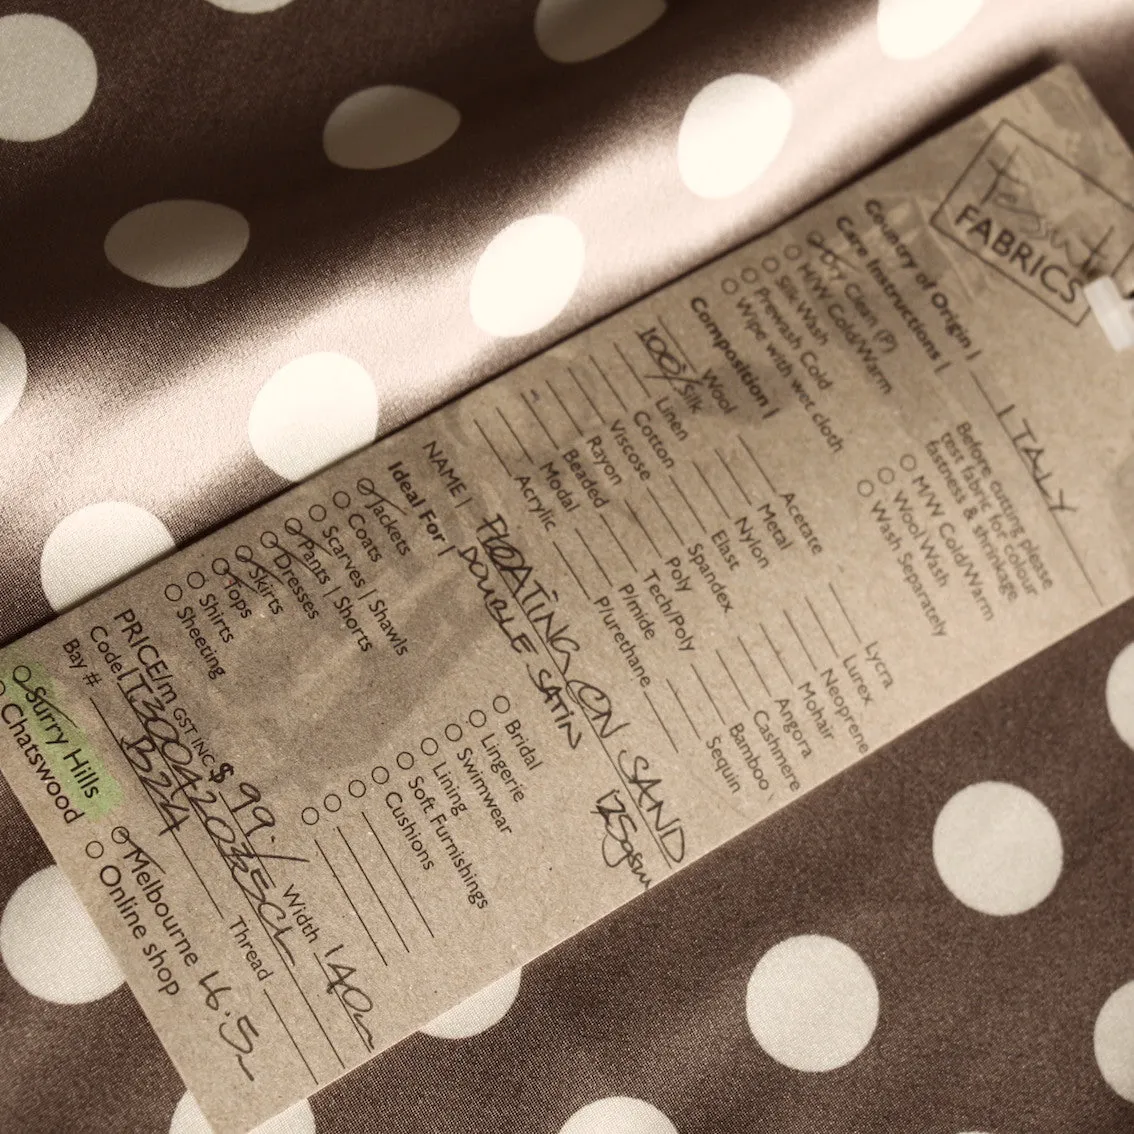 Tessuti
FABRICS
Country of Origin | ITALY
Care Instructions |
Dry Clean (P)
M/W Cold/Warm
Silk-Wash
Prewash Cold
Wipe with wet cloth
Before cutting please
test fabric for colour
fastness & shrinkage
M/W Cold/Warm
Wool Wash
Wash Separately
Composition |
Wool
100% Silk
Linen
Cotton
Viscose
Rayon
Beaded
Modal
Acrylic
Acetate
Metal
Nylon
Elast
Spandex
Poly
Tech/Poly
P/mide
P/urethane
Lycra
Lurex
Neoprene
Mohair
Angora
Cashmere
Bamboo
Sequin
NAME | FLOATING ON SAND
DOUBLE SATIN 175gsm
Ideal For |
Jackets
Coats
Scarves | Shawls
Pants | Shorts
Dresses
Skirts
Tops
Shirts
Sheeting
Bridal
Lingerie
Swimwear
Lining
Soft Furnishings
Cushions
PRICE/m GST INC $ 99./ Width 140
Code| Thread
Bay # B24
Surry Hills
Chatswood
Melbourne 16.5
Online shop